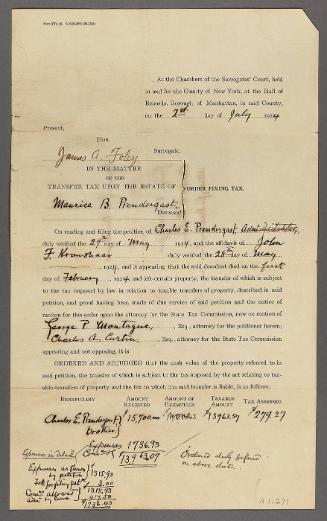 At the Chambers of the Surrogates' Court, held
in and for the County of New York, at the Hall of
Records, Borough of Manhattan, in said County,
on the 2nd day of July 1924
Present,
Hon.
James A. Foley
Surrogate.
IN THE MATTER
OF THE
TRANSFER TAX UPON THE ESTATE OF
Maurice B. Prendergast
Deceased.
ORDER FIXING TAX.
On reading and filing the petition of Charles E. Prendergast, Administrator,
duly verified the 29th day of May 1924, and the affidavit of John
F. duly verified the 28th day of May
1924, and it appearing that the said decedent died on the first
day of February 1924 and that certain property, the transfer of which is subject
to the tax imposed by law in relation to taxable transfers of property, described in said
petition, and proof having been made of due service of said petition and the notice of
motion for this order upon the attorney for the State Tax Commission, now on motion of
George P. Montague, Esq., attorney for the petitioner herein;
Charles A. Curtin, Esq., attorney for the State Tax Commission
appearing and not opposing, it is
ORDERED AND ADJUDGED that the cash value of the property referred to in
said petition, the transfer of which is subject to the tax imposed by the act relating to tax-
able transfers of property and the tax to which the said transfer is liable, is as follows:
BENEFICIARY AMOUNT RECEIVED AMOUNT OF EXEMPTION TAXABLE AMOUNT TAX ASSESSED
Charles E. Prendergast 15,700.00 $13963.07 $279.27
brother
Expenses 1736.93
13963.07
Expenses in detail
Expenses as
by petition 1315.93
3.00
1315.93
1736.93
Ordered duly
on above date.
A 1.271